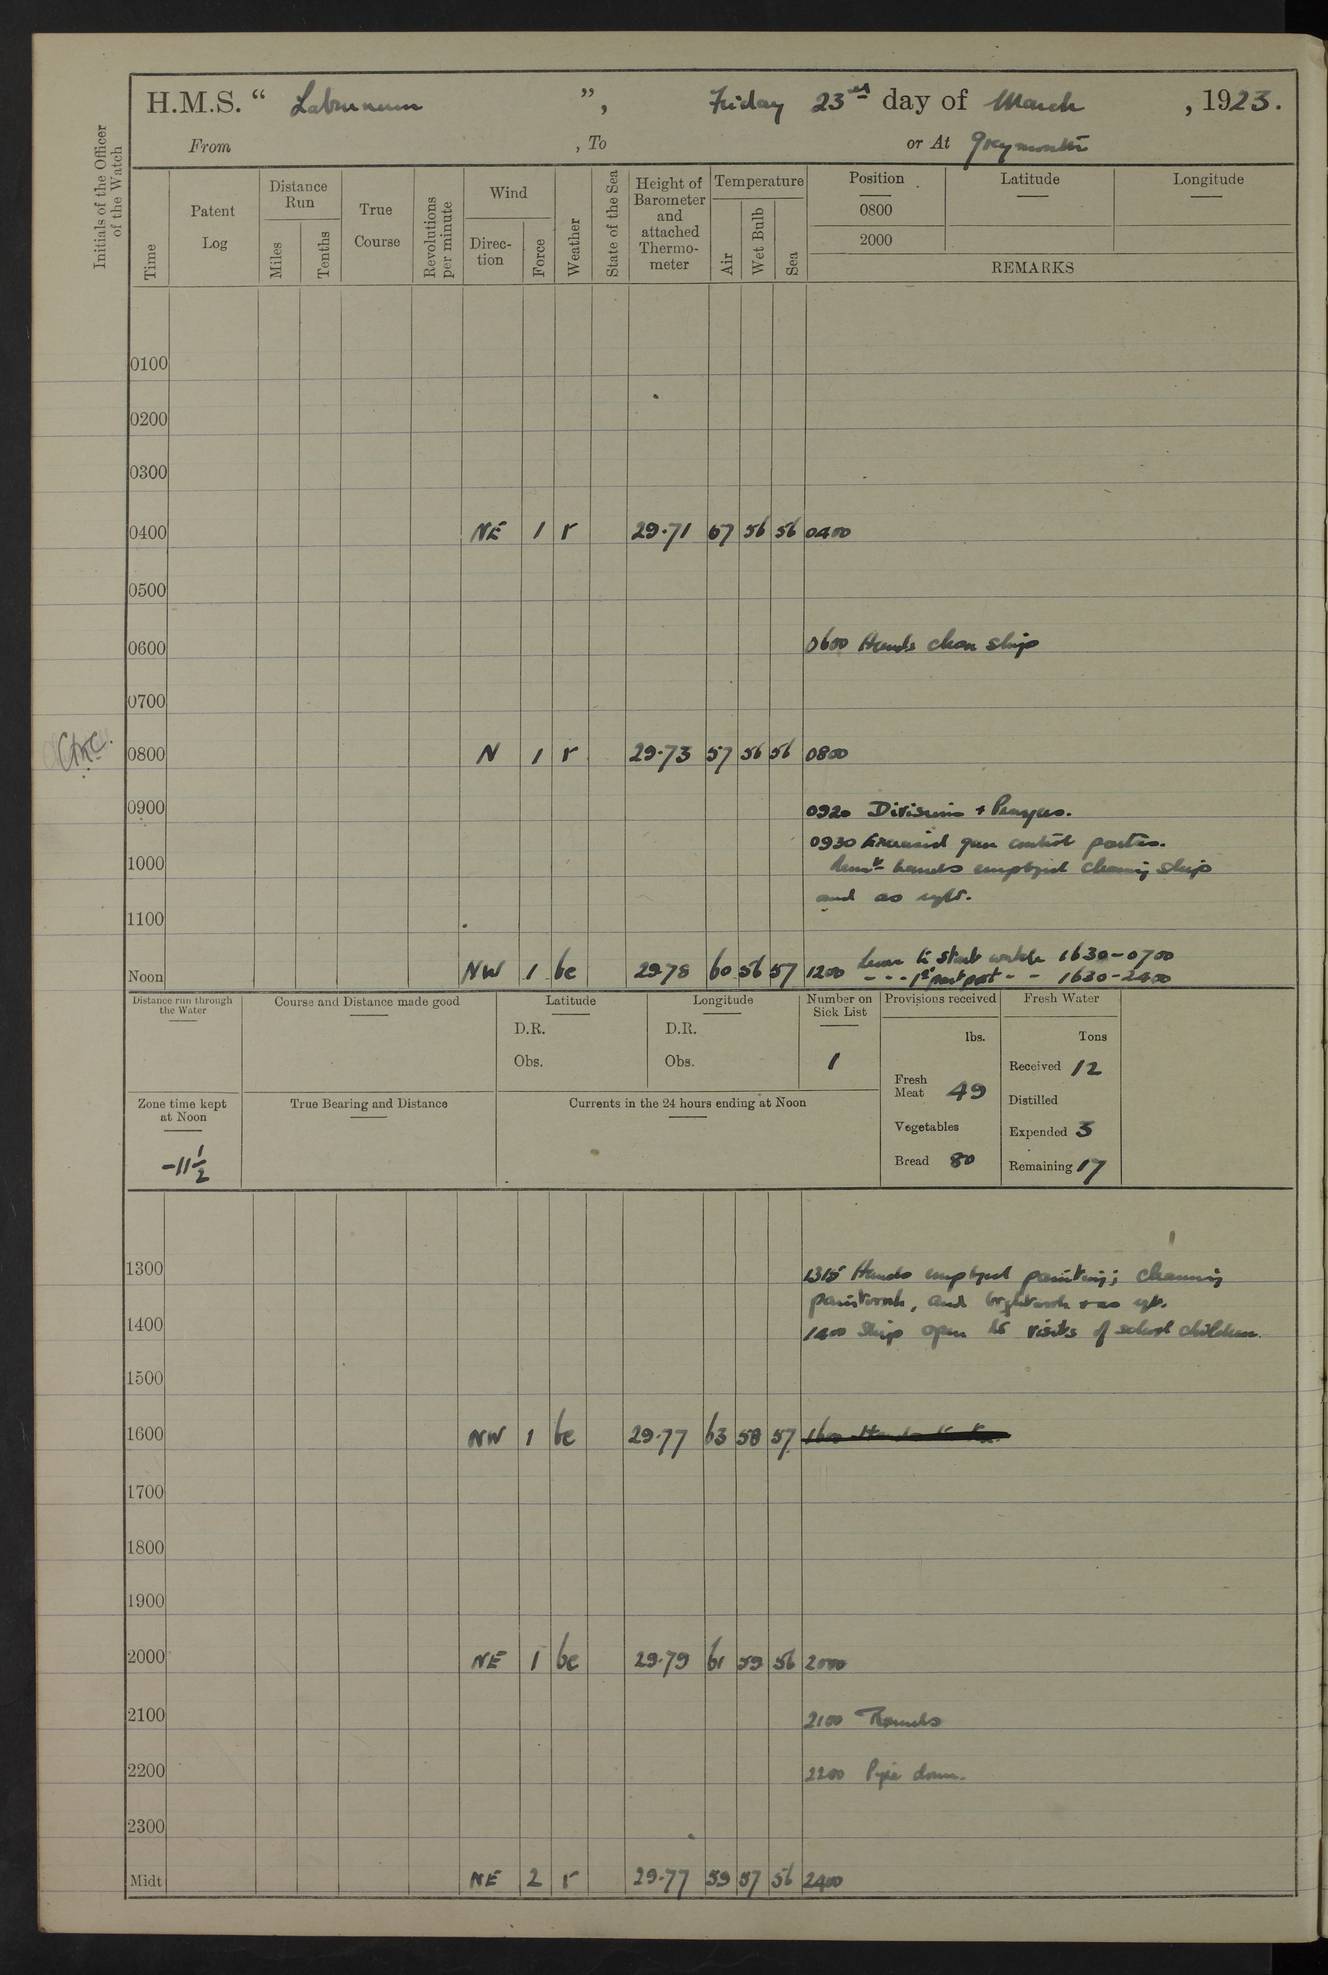 H.M.S. “ Laburnum ”, Friday 23rd day of March, 1923.
From , To or At Greymouth
Initials of the Officer of the Watch
Time
Patent Log
Distance Run
Miles
Tenths
True Course
Revolutions per minute
Wind
Direc-tion
Force
Weather
State of the Sea
Height of Barometer and attached Thermo-meter
Temperature
Air
Wet Bulb
Sea
Position
0800
2000
Latitude
Longitude
REMARKS
0100
0200
0300
0400 NE 1 r 29.71 57 56 56 0400
0500
0600 0600 Hands clean ship
0700
0800 N 1 r 29.73 57 56 56 0800
0900 0920 Divisions + Prayers.
0930 Exercised gun control parties.
1000 Remdr hands employed cleaning ship
and as reqte.
1100
Noon NW 1 bc 29.78 60 56 57 1200 Leave to Starb watch 1630-0700
- - - 1st part port - - 1630-2400
Distance run through the Water
Course and Distance made good
Latitude
D.R.
Obs.
Longitude
D.R.
Obs.
Number on Sick List
1
Provisions received
lbs.
Fresh Meat 49
Vegetables
Bread 80
Fresh Water
Tons
Received 12
Distilled
Expended 3
Remaining 17
Zone time kept at Noon
-11 1/2
True Bearing and Distance
Currents in the 24 hours ending at Noon
1300 1315 Hands employed painting; cleaning
paintwork, and brightwork + as reqte.
1400 1400 Ship open to visits of school children.
1500
1600 NW 1 bc 29.77 63 58 57
1700
1800
1900
2000 NE 1 bc 29.79 61 59 56 2000
2100 2100 Rounds
2200 2200 Pipe down.
2300
Midt NE 2 r 29.77 59 57 56 2400